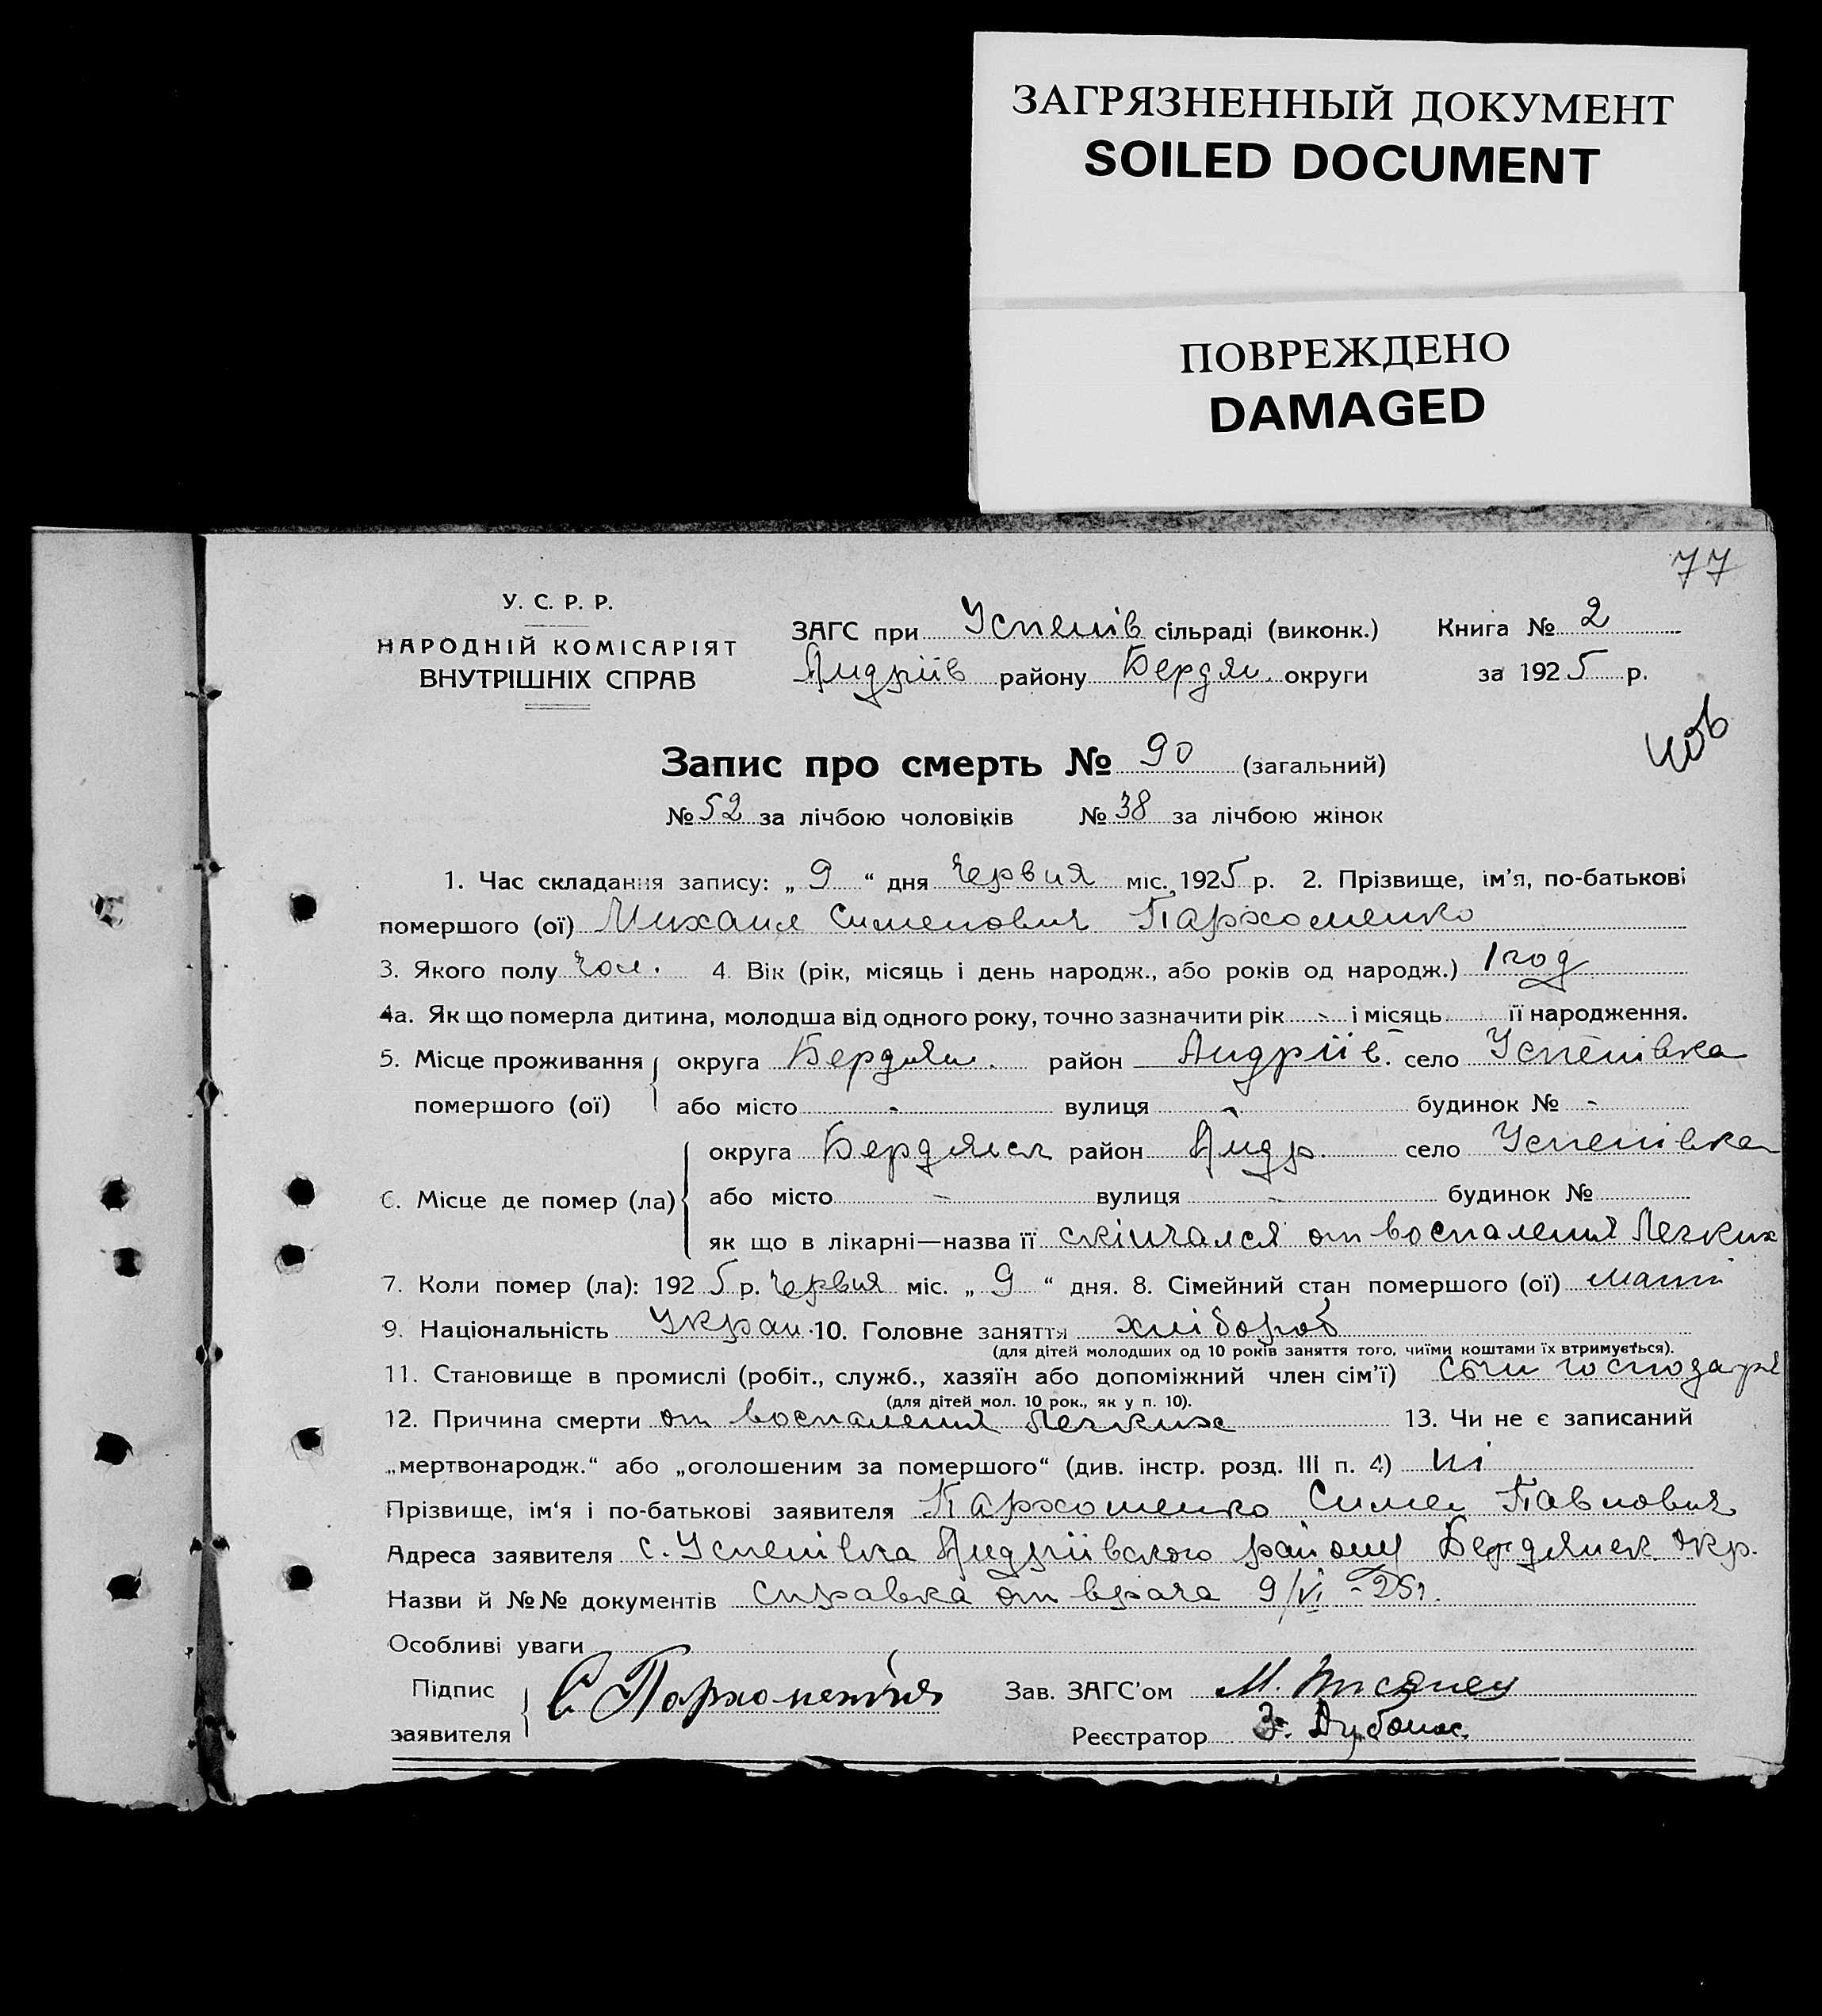 ЗАГРЯЗНЕННЫЙ ДОКУМЕНТ
SOILED DOCUMENT
ПОВРЕЖДЕНО
DAMAGED
77
У. С. Р. Р.
НАРОДНІЙ КОМІСАРІЯТ
ВНУТРІШНІХ СПРАВ
ЗАГС при Успенів сільраді (виконк.) Книга № 2
Андріїв району Бердян. округи за 1925 р.
Запис про смерть № 90 (загальний)
№ 52 за лічбою чоловіків № 38 за лічбою жінок
1. Час складання запису: „ 9 “ дня Червня міс. 1925 р. 2. Прізвище, ім’я, по-батькові
помершого (ої) Михаил Сименович Пархоменко
3. Якого полу чол. 4. Вік (рік, місяць і день народж., або років од народж.) 1 год
4а. Як що померла дитина, молодша від одного року, точно зазначити рік - і місяць - її народження.
5. Місце проживання округа Бердян. район Андріїв. село Успенівка
помершого (ої) або місто - вулиця - будинок № -
округа Бердянск район Андр. село Успенівка
6. Місце де помер (ла) або місто - вулиця - будинок №
як що в лікарні—назва її скінчался от воспаления Легких
7. Коли помер (ла): 1925 р. Червня міс. „ 9 “ дня. 8. Сімейний стан помершого (ої)
9. Національність Украи. 10. Головне заняття хлібороб
(для дітей молодших од 10 років заняття того, чиїми коштами їх втримується).
11. Становище в промислі (робіт., служб., хазяїн або допоміжний член сім’ї) сын господаря
(для дітей мол. 10 рок., як у п. 10).
12. Причина смерти от воспаления Легких 13. Чи не є записаний
„мертвонародж.“ або „оголошеним за помершого“ (див. інстр. розд. III п. 4) ні
Прізвище, ім‘я і по-батькові заявителя Пархоменко Симен Павлович
Адреса заявителя с. Успенівка Андріївского району Бердянск. окр.
Назви й №№ документів Справка от врача 9/VI - 25 г.
Особливі уваги
Підпис
заявителя С. Пархоменко
Зав. ЗАГС’ом М.
Реєстратор З.